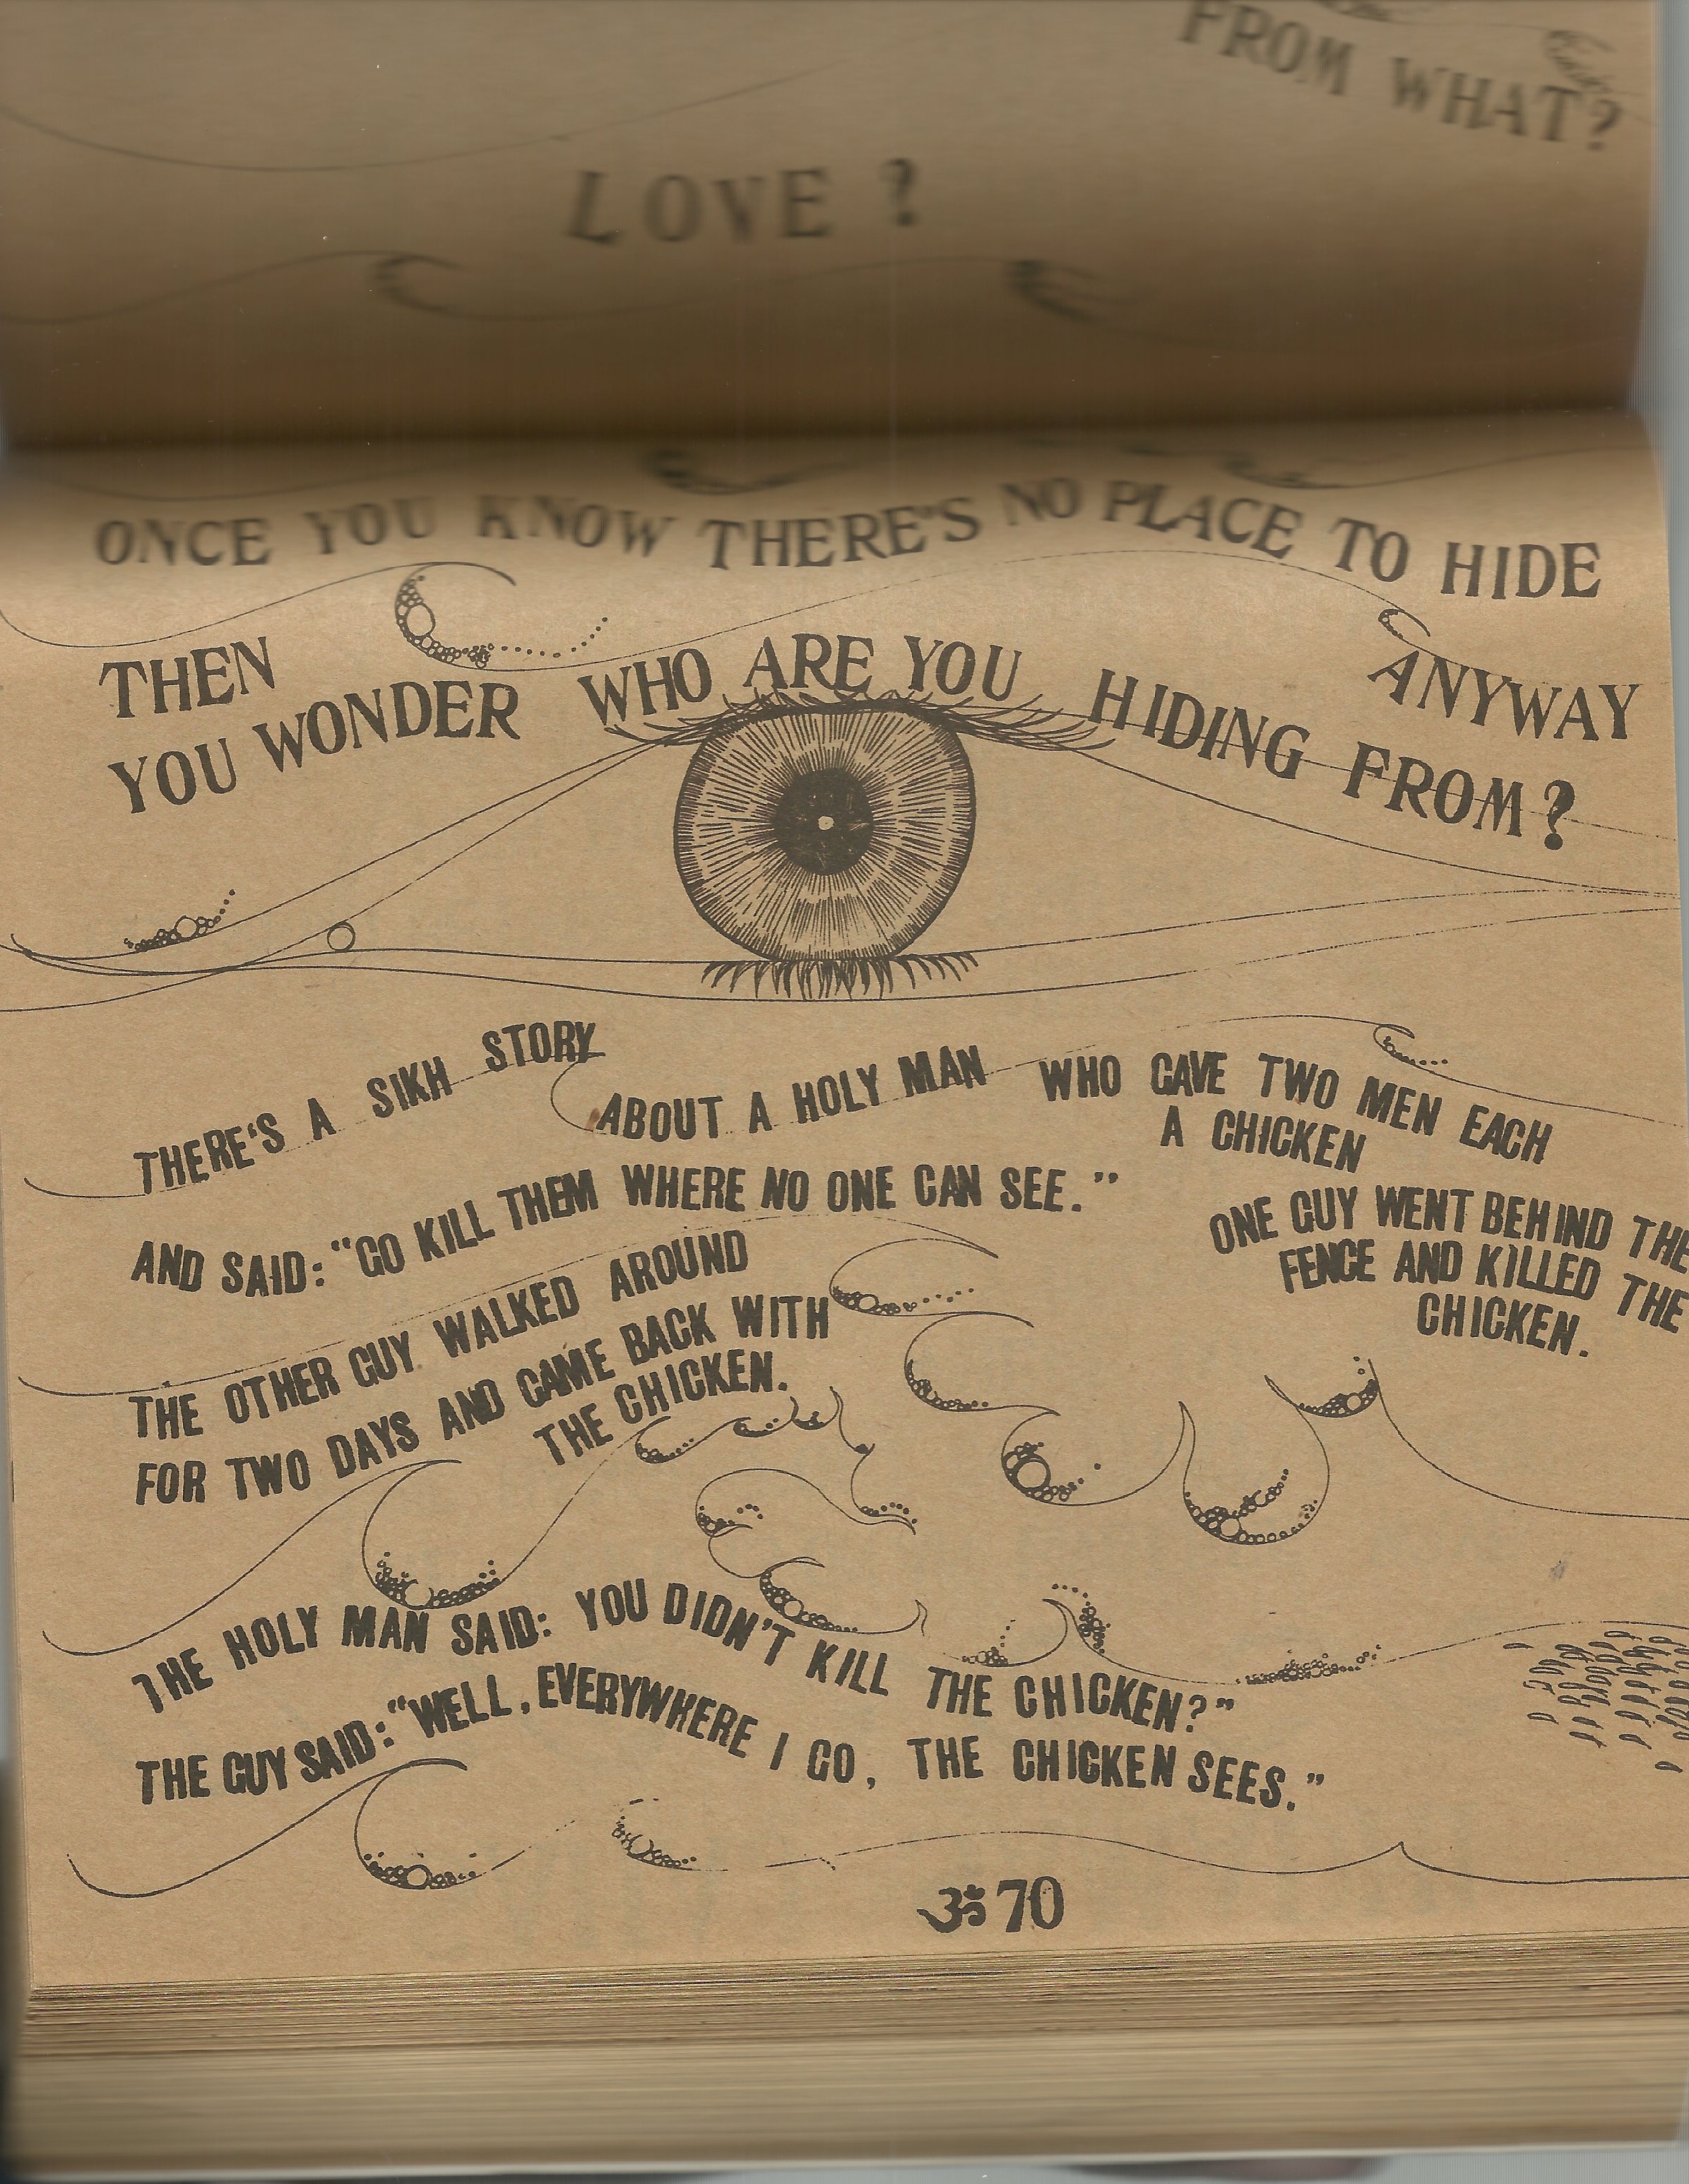 FROM WHAT?
LOVE ?
ONCE YOU KNOW THERE'S NO PLACE TO HIDE
THEN
YOU WONDER WHO ARE YOU HIDING FROM?
ANYWAY
THERE'S A SIKH STORY ABOUT A HOLY MAN WHO GAVE TWO MEN EACH
A CHICKEN
AND SAID: "GO KILL THEM WHERE NO ONE CAN SEE."
ONE GUY WENT BEHIND THE
FENCE AND KILLED THE
CHICKEN.
THE OTHER GUY WALKED AROUND
FOR TWO DAYS AND CAME BACK WITH
THE CHICKEN.
THE HOLY MAN SAID: YOU DIDN'T KILL THE CHICKEN?"
THE GUY SAID: "WELL, EVERYWHERE I GO, THE CHICKEN SEES."
ॐ 70